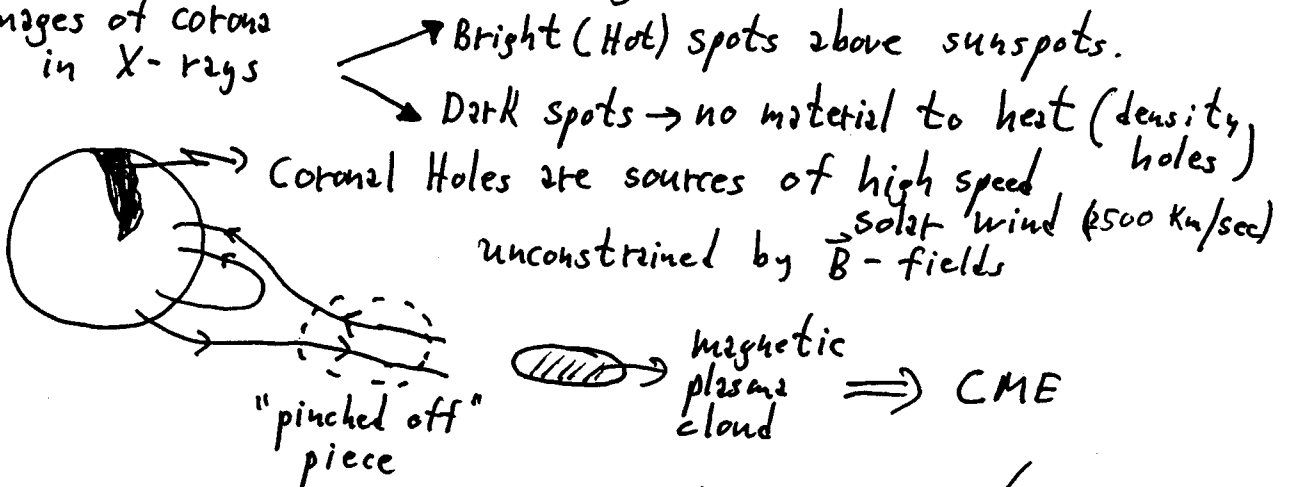 mages of corona
in X-rays
Bright (Hot) spots above sunspots.
Dark spots → no material to heat (density holes)
Coronal Holes are sources of high speed
solar wind (≥500 Km/sec)
unconstrained by B⃗-fields
"pinched off"
piece
magnetic
plasma
cloud
⇒ CME